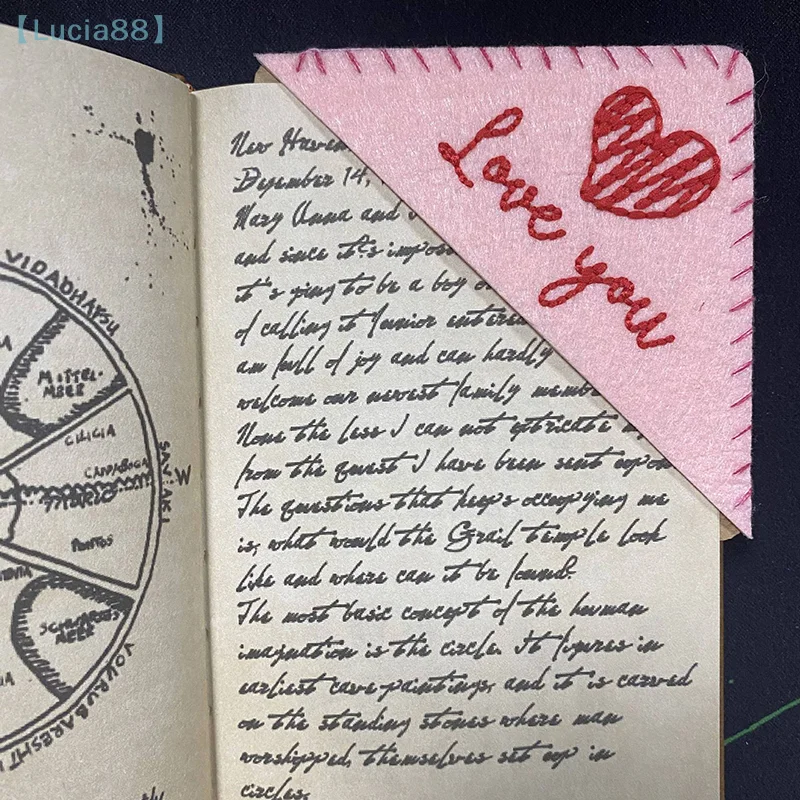 【Lucia88】
Love you
New Haven
December 14,
Mary Anna and
and since it's impos
it's going to be a boy
of calling it Junior
am full of joy and can hardly
welcome our newest family membe
None the less I can not extricate
from the quest I have been sent upon
The questions that keeps occupying me
is, what would the Grail temple look
like and where can it be found?
The most basic concept of the human
imagination is the circle. It figures in
earliest cave-paintings, and it is carved
on the standing stones where man
worshipped, themselves set up in
circles.
VIDADHAFSU
MITTEL-
MEER
CILICIA
SAVAHI
W
PONTOS
SCHWARZES
MEER
VOURUBARESHTI